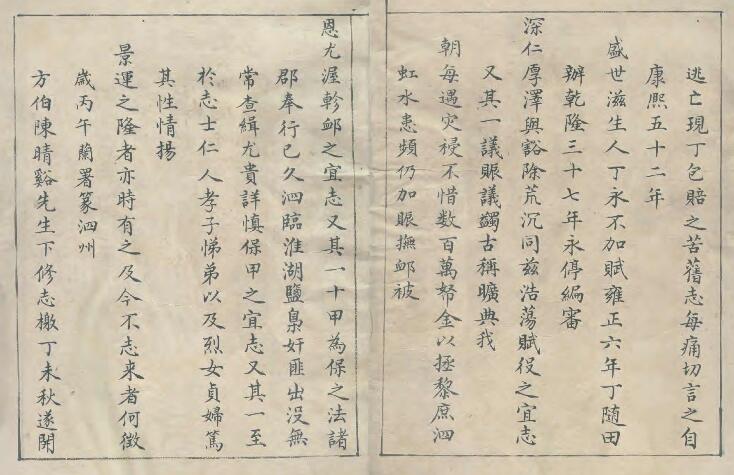 逃亡現丁包賠之苦舊志每痛切言之自
康熙五十二年
盛世滋生人丁永不加賦雍正六年丁隨田
辦乾隆三十七年永停編審
深仁厚澤與豁除荒沉同兹浩蕩賦役之宜志
又其一議賑議蠲古稱曠典我
朝每遇灾祲不惜数百萬帑金以拯黎庶泗
虹水患頻仍加賑撫邺被
恩尤渥軫邺之宜志又其一十甲為保之法諸
郡奉行已久泗臨淮湖鹽梟奸匪出没無
常查緝尤貴詳慎保甲之宜志又其一至
於志士仁人孝子悌弟以及烈女貞婦篤
其性情揚
景運之隆者亦時有之及今不志来者何徵
歲丙午蘭署篆泗州
方伯陳晴谿先生下修志檄丁未秋遂開